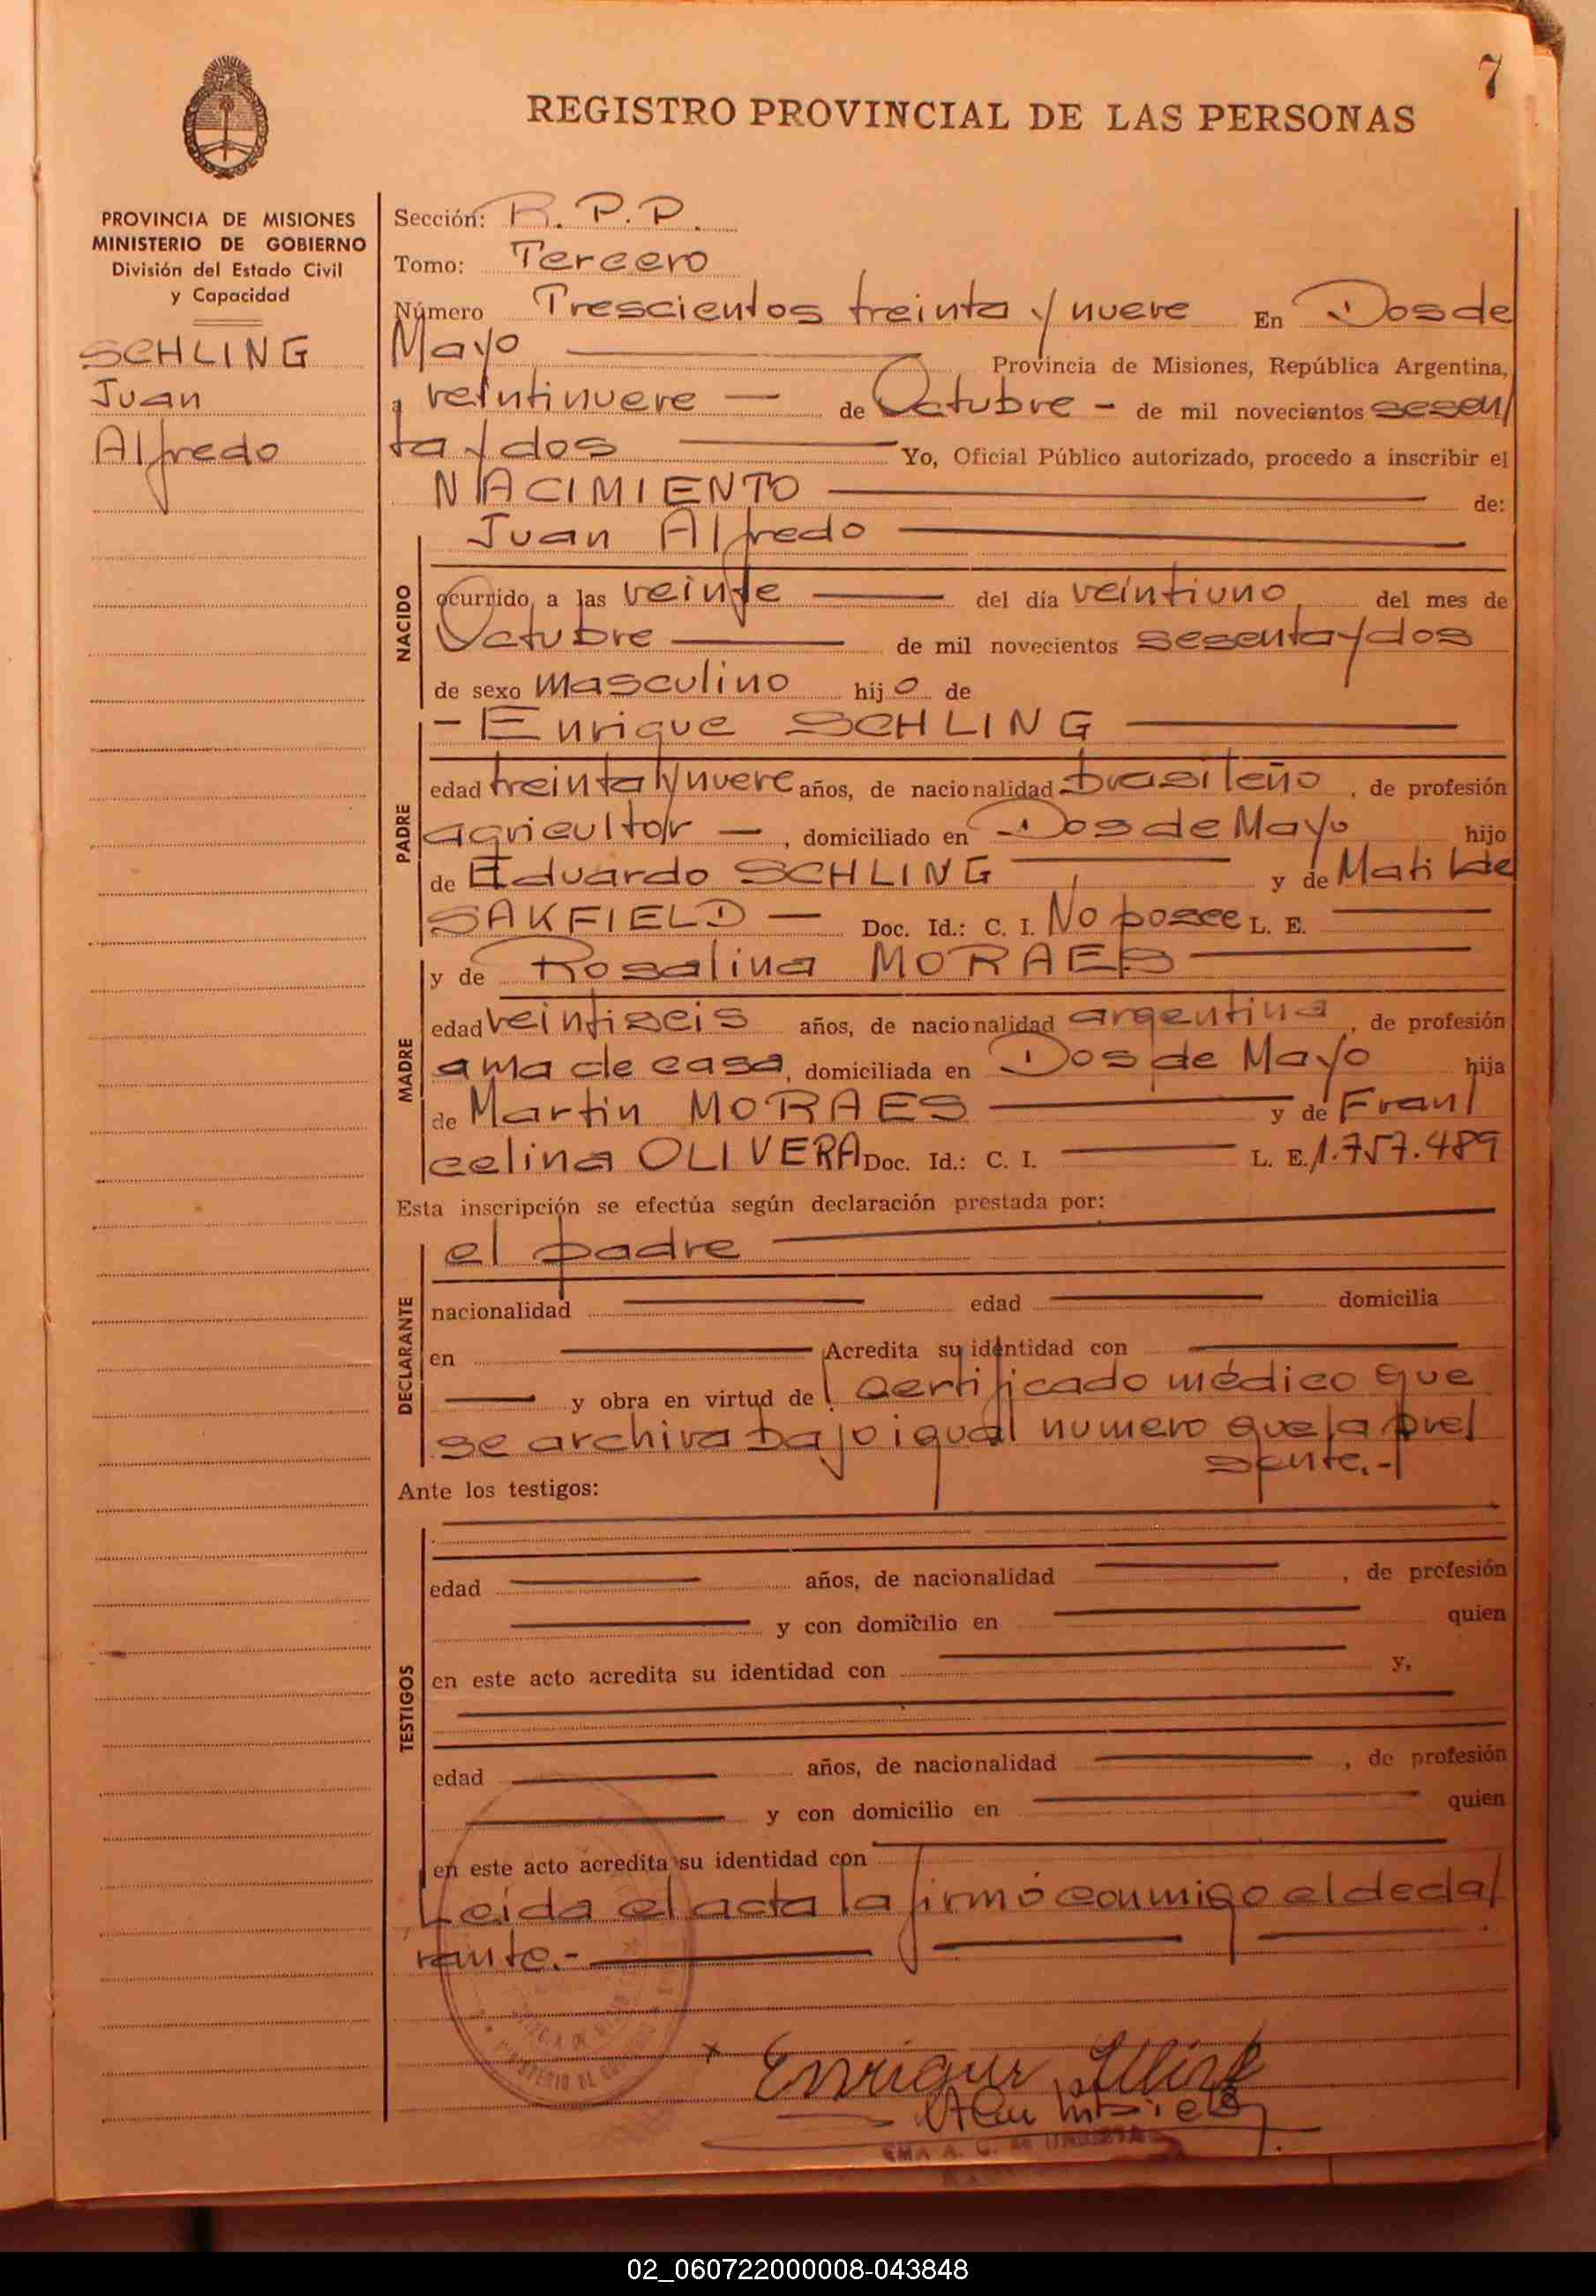 7
REGISTRO PROVINCIAL DE LAS PERSONAS
PROVINCIA DE MISIONES
MINISTERIO DE GOBIERNO
División del Estado Civil
y Capacidad
SCHLING
Juan
Alfredo
Sección: R.P.P.
Tomo: Tercero
Número Trescientos treinta y nueve En Dos de
Mayo Provincia de Misiones, República Argentina,
a veintinueve de Octubre - de mil novecientos sesen/
ta y dos Yo, Oficial Público autorizado, procedo a inscribir el
NACIMIENTO de:
Juan Alfredo
NACIDO
ocurrido a las veinte del día veintiuno del mes de
Octubre de mil novecientos sesenta y dos
de sexo masculino hijo de
- Enrique SCHLING
PADRE
edad treinta y nueve años, de nacionalidad brasileño, de profesión
agricultor —, domiciliado en Dos de Mayo hijo
de Eduardo SCHLING y de Matilde
SAKFIELD — Doc. Id.: C. I. No posee L. E.
y de Rosalina MORAES
MADRE
edad veintiseis años, de nacionalidad argentina, de profesión
ama de casa, domiciliada en Dos de Mayo hija
de Martin MORAES y de Fran/
celina OLIVERA Doc. Id.: C. I. L. E. 1.757.489
Esta inscripción se efectúa según declaración prestada por:
el padre
DECLARANTE
nacionalidad edad domicilia
en Acredita su identidad con
y obra en virtud de Certificado médico que
se archiva bajo igual numero que la pre/
sente.-
Ante los testigos:
TESTIGOS
edad años, de nacionalidad , de profesión
y con domicilio en quien
en este acto acredita su identidad con y,
edad años, de nacionalidad , de profesión
y con domicilio en quien
en este acto acredita su identidad con
Leida el acta la firmó conmigo el decla/
rante.-
x Enrique
02_060722000008-043848